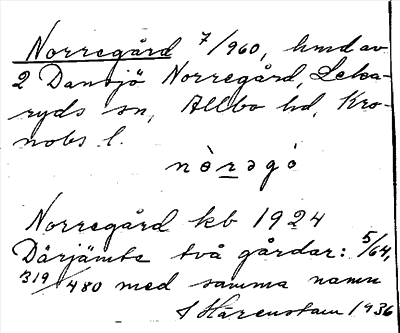 Norregård 7/960, hmd av
2 Dansjö Norregård, Leka-
ryds sn, Allbo hd, Kro-
nobs l.
nòrəgó
Norregård kb 1924
Därjämte två gårdar: 5/64,
319/480 med samma namn
Härenstam 1936